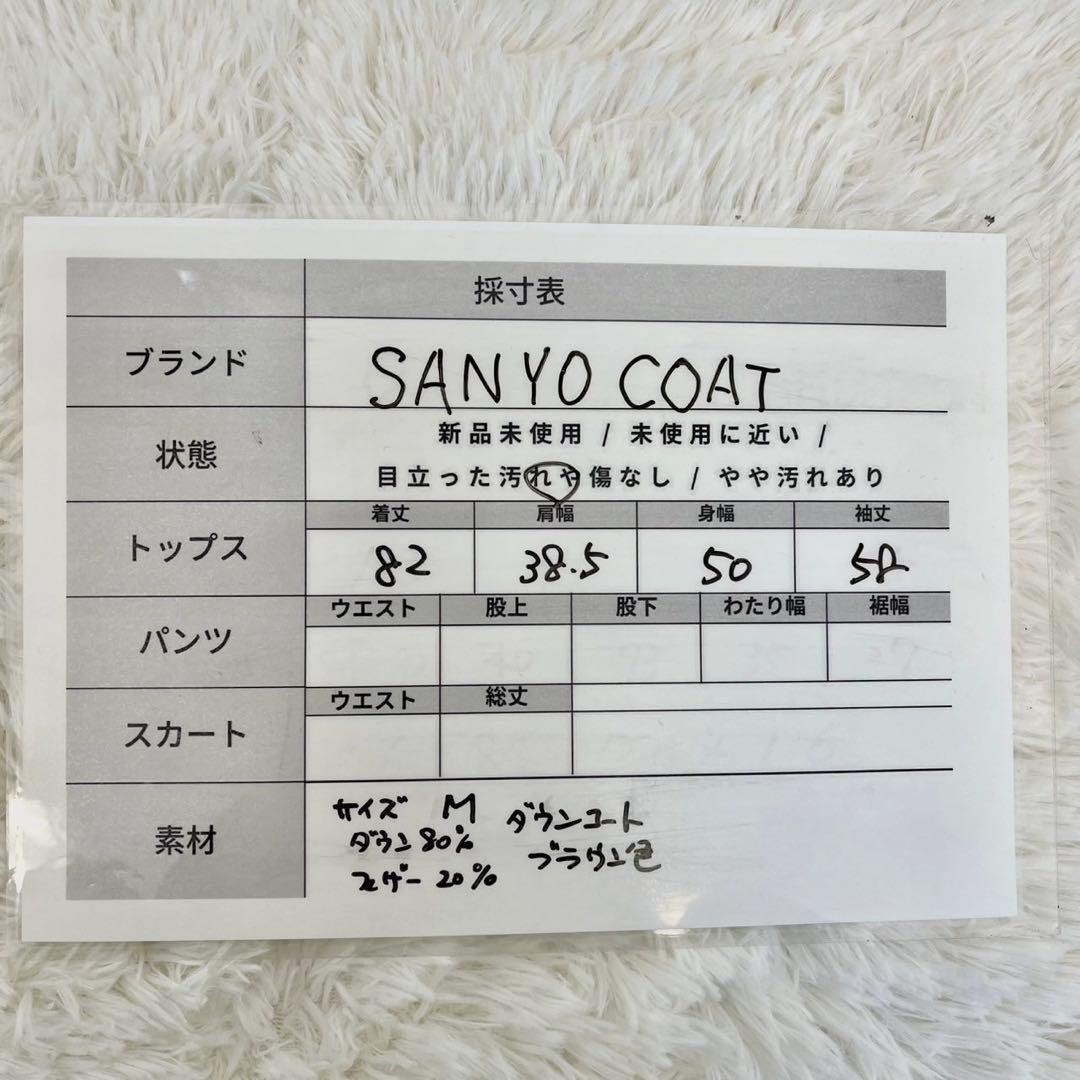 採寸表
ブランド SANYO COAT
状態 新品未使用 / 未使用に近い /
目立った汚れや傷なし / やや汚れあり
着丈 肩幅 身幅 袖丈
トップス 82 38.5 50 58
ウエスト 股上 股下 わたり幅 裾幅
パンツ
ウエスト 総丈
スカート
素材 サイズ M ダウンコート
ダウン 80% ブラウン色
フェザー 20%